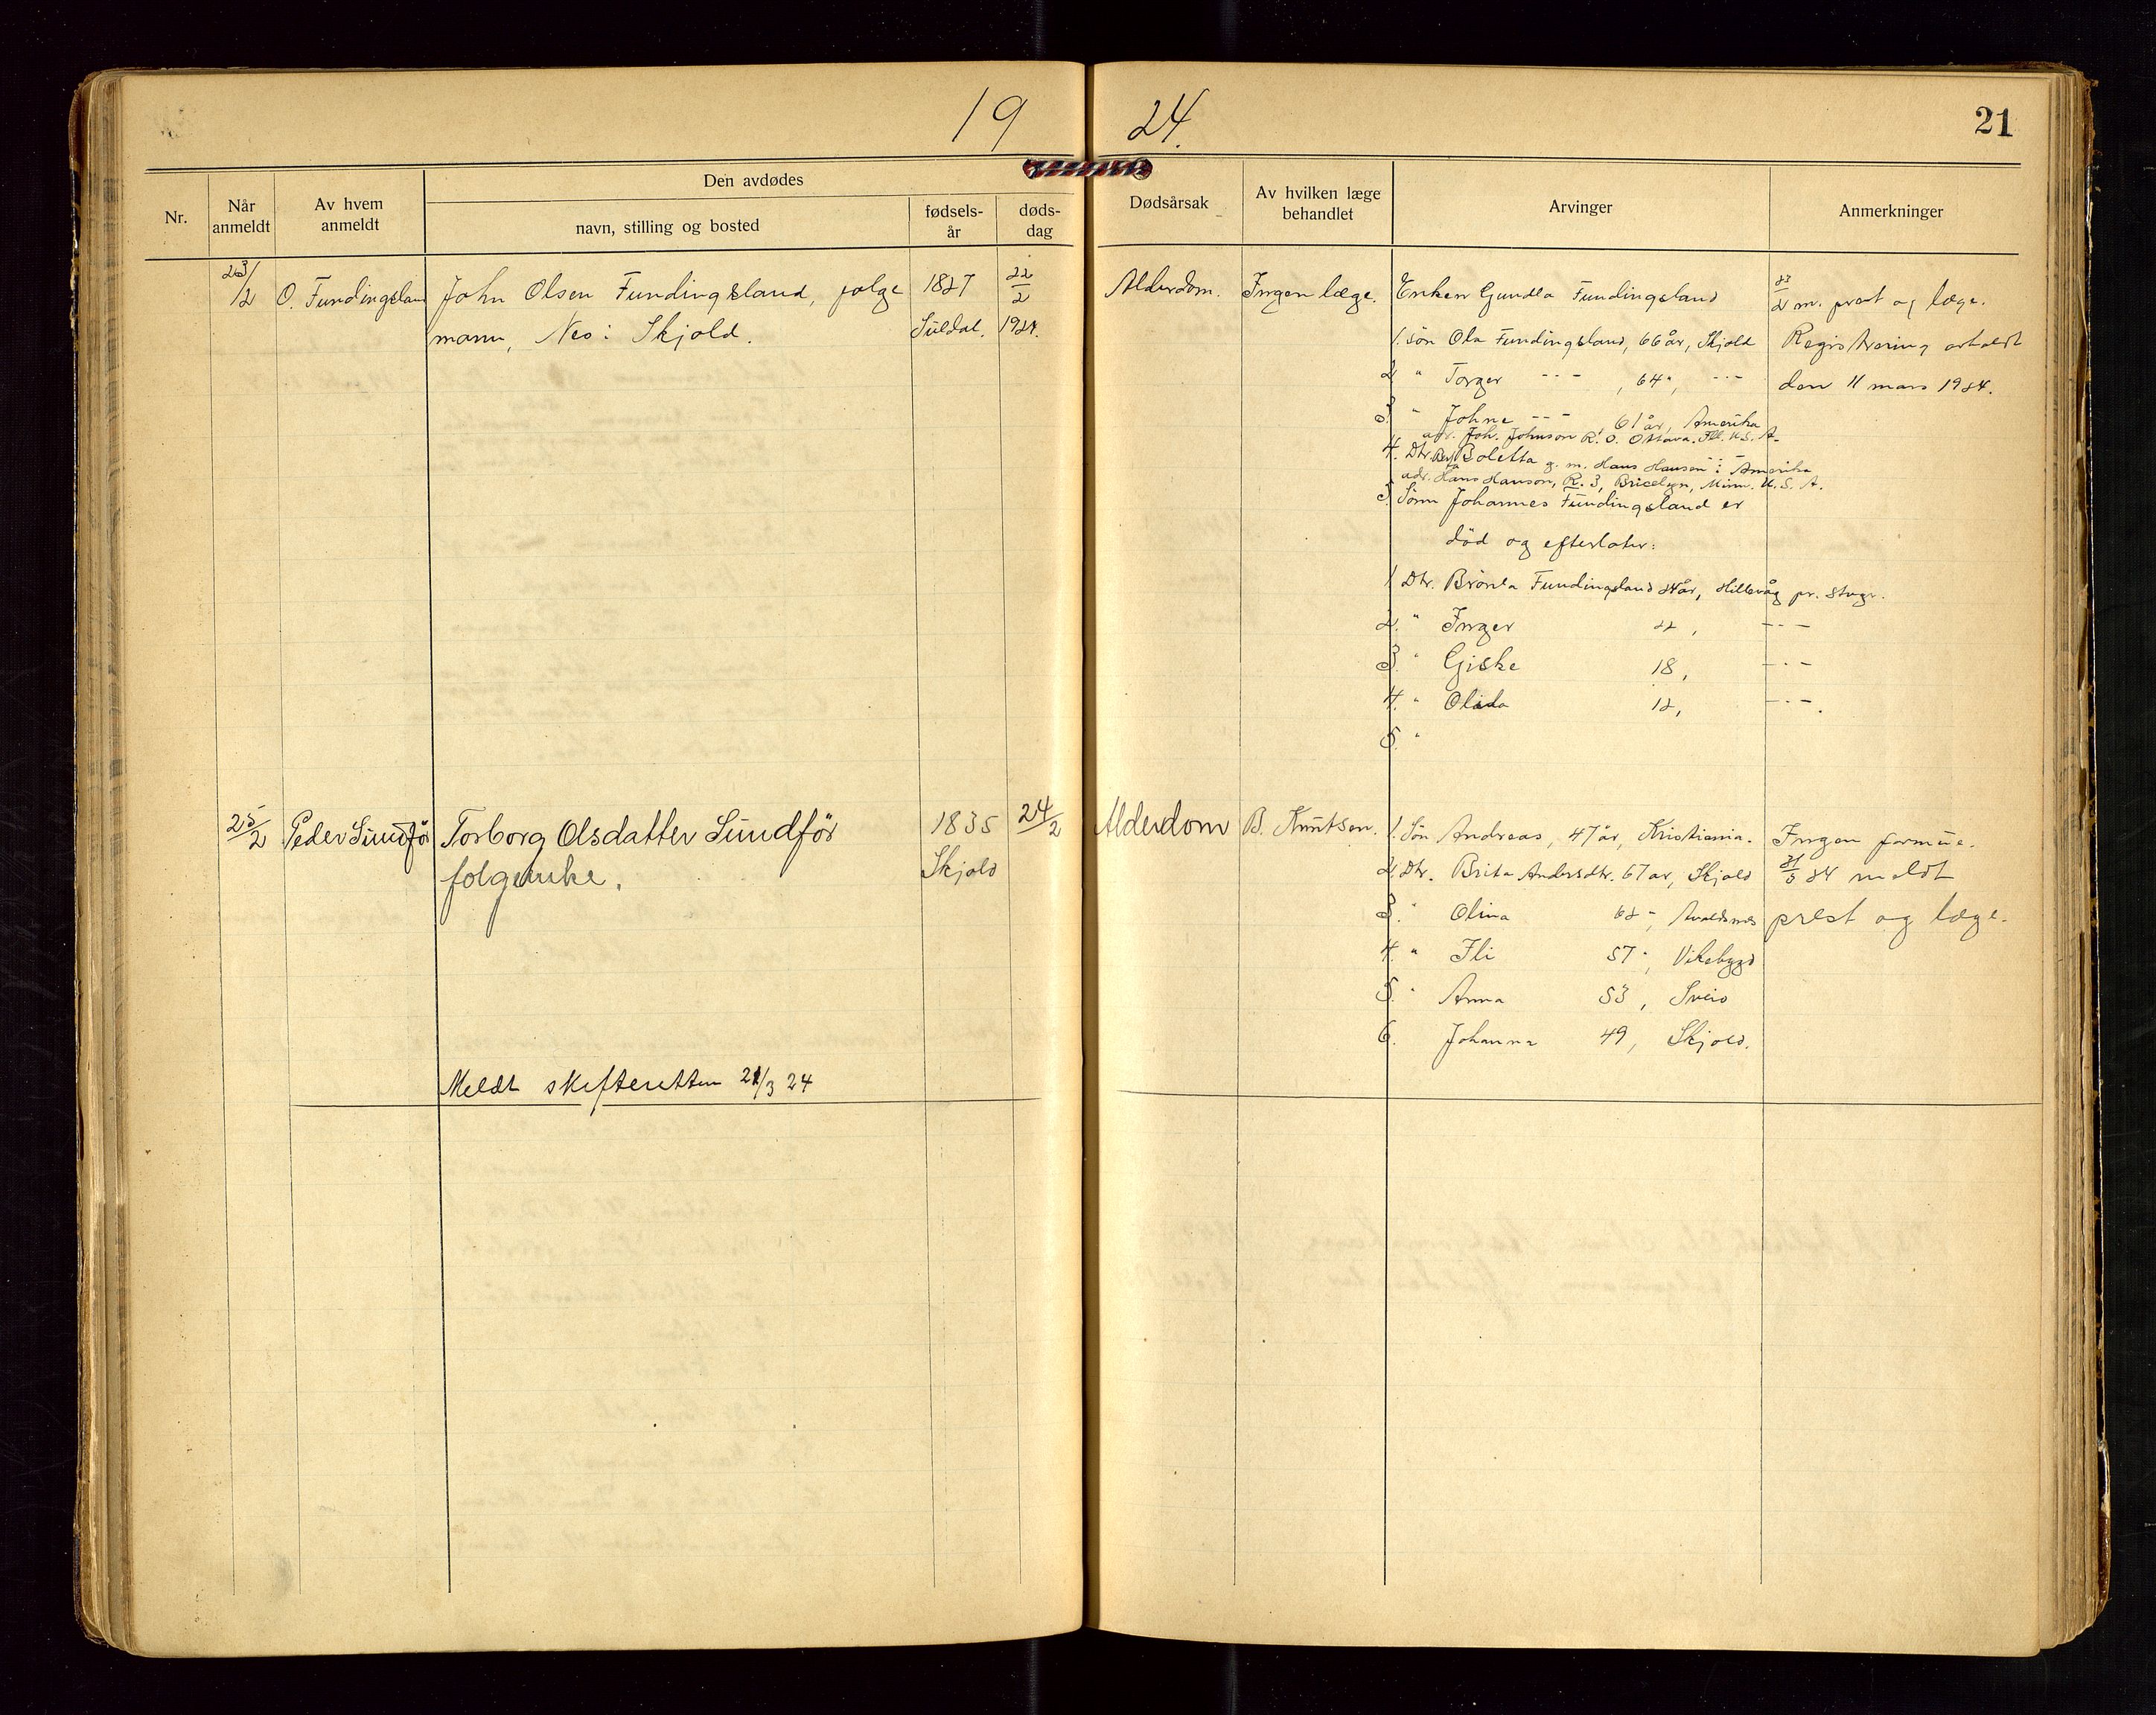 19 24.
21
Nr.
Når anmeldt
Av hvem anmeldt
Den avdødes
navn, stilling og bosted
fødsels-år
døds-dag
Dødsårsak
Av hvilken læge behandlet
Arvinger
Anmerkninger
23/2 O. Fundingsland John Olsen Fundingsland, folge 1827 22/2
mann, Nes i Skjold. Suldal. 1924.
Alderdom. Ingen læge. Enken Gundla Fundingsland 23/2 m. prest og læge.
1. Søn Ola Fundingsland, 66 år, Skjold Registrering avholdt
2 " Torger -"- , 64 ", -"- den 11 mars 1924.
3. " Johne -"- , 61 år, Amerika
adr. Joh. Johnson R. O. Ottava. Ill. U.S.A.
4. Dtr. Boletta g. m. Hans Hansen i Amerika
adr. Hans Hanson, R. 3, Bricelyn, Minn. U.S.A.
5 Sønn Johannes Fundingsland er
død og efterlater:
1 Dtr. Brönla Fundingsland 24 år, Hillevåg pr. Stvgr.
2. " Inger 22, -"-
3. " Giske 18, -"-
4. " Olida 12, -"-.
5. "
25/2 Peder Sundför Torborg Olsdatter Sundför 1835 24/2
folgeenke. Skjold
Alderdom B. Knutsen. 1. Søn Andreas, 47 år, Kristiania. Ingen formue.
2. Dtr. Brita Andersdtr. 67 år, Skjold 21/3 24 meldt
3. " Olina 62 ", Avaldsnes prest og læge.
4. " Ili 57 ", Vikebygd
5. " Anna 53, Sveio
6. Johanna 49, Skjold.
Meldt skifteretten 21/3 24